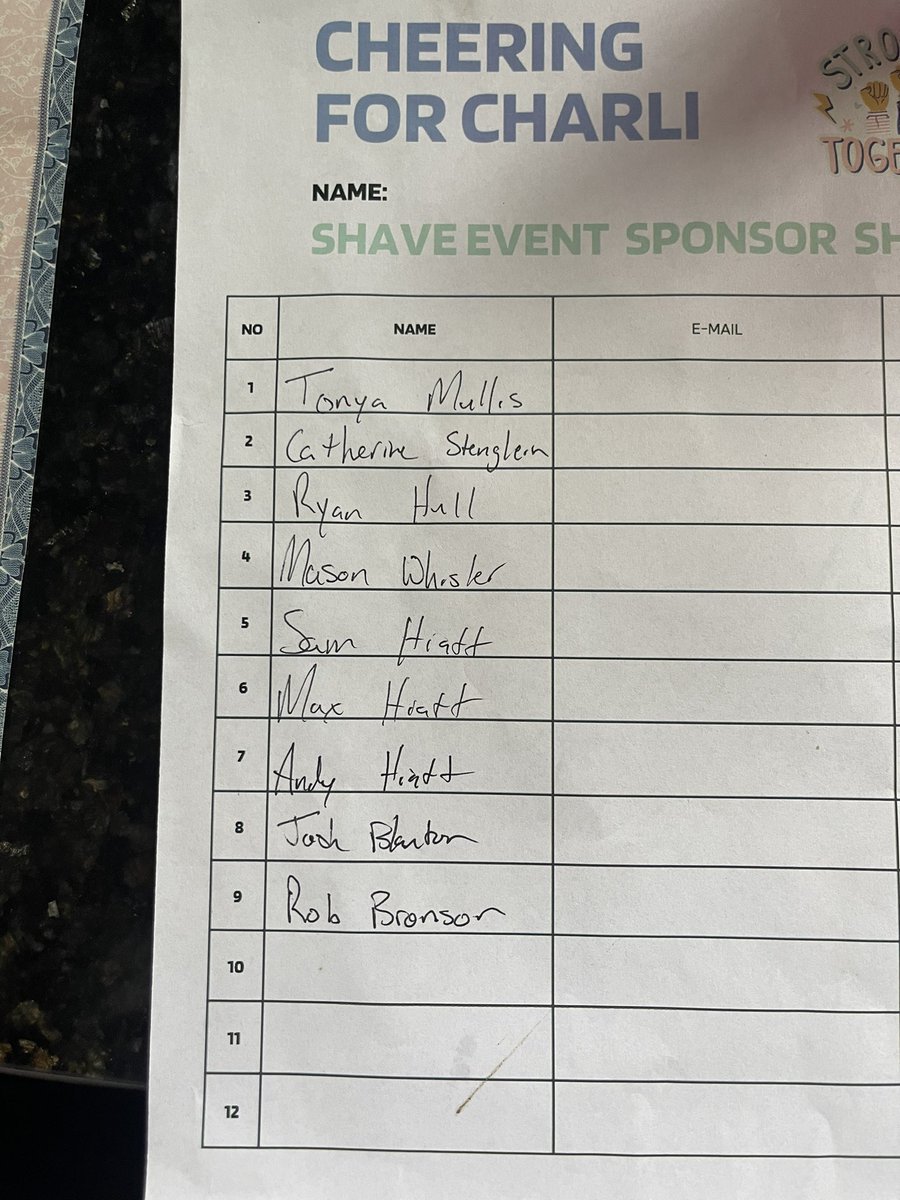 CHEERING
FOR CHARLI
STRO
TOGE
NAME:
SHAVE EVENT SPONSOR SH
NO NAME E-MAIL
1 Tonya Mullis
2 Catherine Stenglein
3 Ryan Hull
4 Mason Whisler
5 Sam Hiatt
6 Max Hiatt
7 Andy Hiatt
8 Josh Blanton
9 Rob Bronson
10
11
12